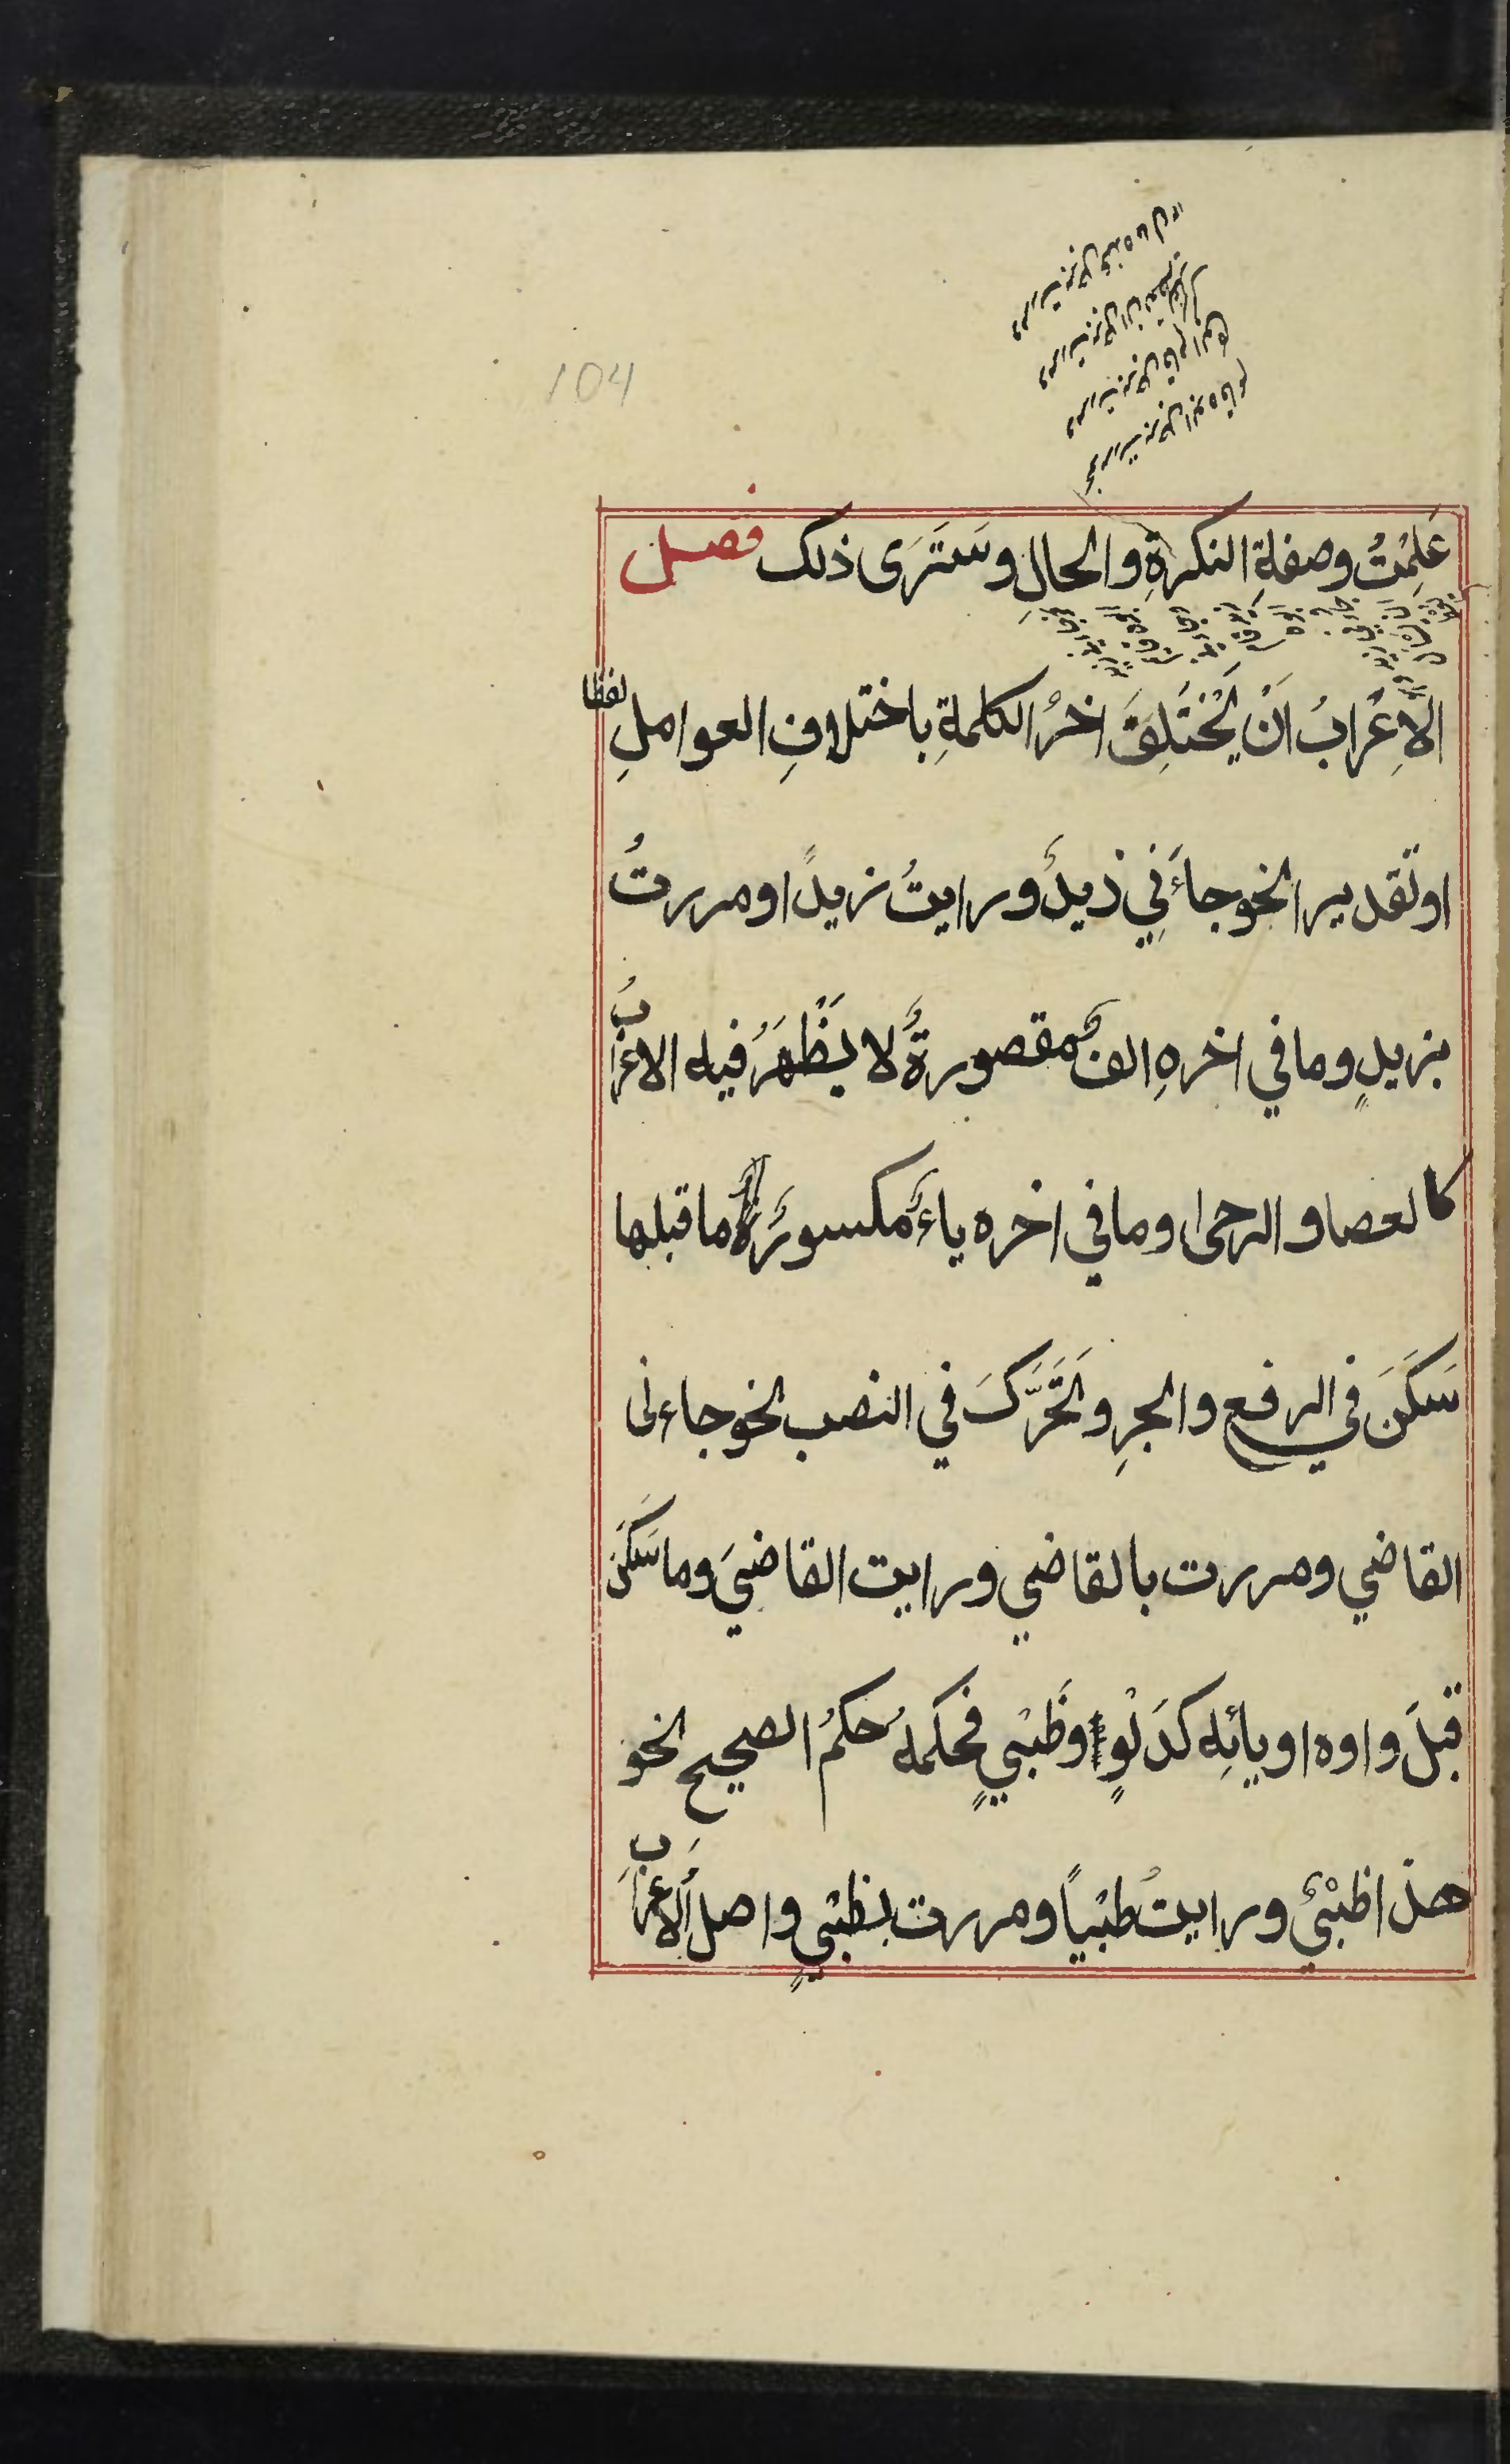 104
مررت برجل ابوه قائم
ومررت برجل قام ابوه
علِمْتُ وصفةِ النكرةِ والحالِ وسَتَرَى ذلك فصل
الاِعْرابُ اَنْ يَخْتَلِفَ اخرُ الكلمةِ باختلافِ العواملِ لفظا
او تقديرا نحو جاءَنِي زيدٌ ورايتُ زيدًا ومررتُ
بزيدٍ وما في اخرهِ الفٌ مقصورةٌ لا يَظْهَرُ فيه الاعرابُ
كالعصا والرحى وما في اخره ياءٌ مكسورٌ ما قبلها
سَكَنَ في الرفع والجرِ وتَحَرَّكَ في النصب نحو جاءنى
القاضي ومررت بالقاضي ورايت القاضيَ وما سَكَنَ
قبلَ واوه او يائِه كدَلْوٍ وظَبْيٍ فحكمهُ حكمُ الصحيح نحو
هذا ظبْيٌ ورايتُ ظبْياً ومررت بظبْيٍ واصلُ الاعرابِ